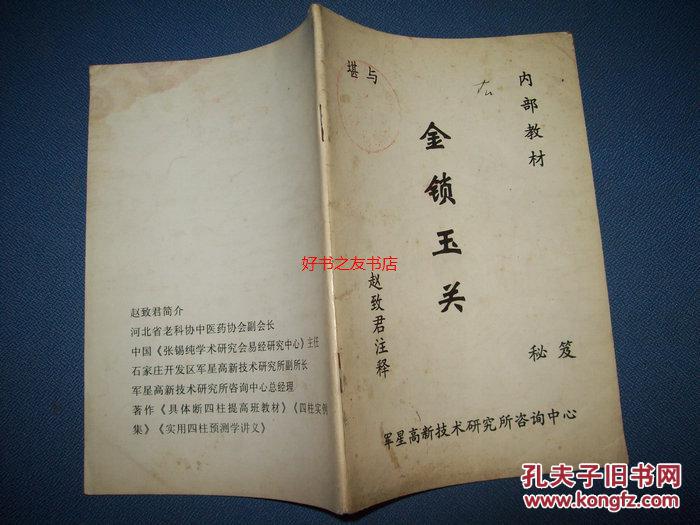 堪与
内部教材
金锁玉关
赵致君注释
秘笈
军星高新技术研究所咨询中心
赵致君简介
河北省老科协中医药协会副会长
中国《张锡纯学术研究会易经研究中心》主任
石家庄开发区军星高新技术研究所副所长
军星高新技术研究所咨询中心总经理
著作《具体断四柱提高班教材》《四柱实例
集》《实用四柱预测学讲义》
好书之友书店
孔夫子旧书网
www.kongfz.com